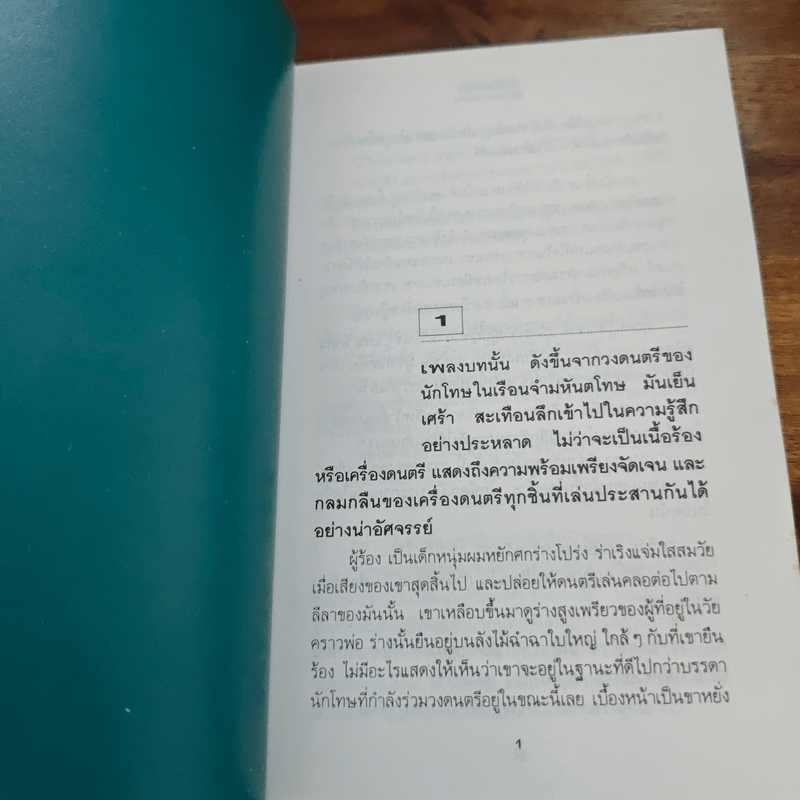 1
เพลงบทนั้น ดังขึ้นจากวงดนตรีของ
นักโทษในเรือนจำมหันตโทษ มันเย็น
เศร้า สะเทือนลึกเข้าไปในความรู้สึก
อย่างประหลาด ไม่ว่าจะเป็นเนื้อร้อง
หรือเครื่องดนตรี แสดงถึงความพร้อมเพรียงจัดเจน และ
กลมกลืนของเครื่องดนตรีทุกชิ้นที่เล่นประสานกันได้
อย่างน่าอัศจรรย์
ผู้ร้อง เป็นเด็กหนุ่มผมหยักศกร่างโปร่ง ร่าเริงแจ่มใสสมวัย
เมื่อเสียงของเขาสุดสิ้นไป และปล่อยให้ดนตรีเล่นคลอต่อไปตาม
ลีลาของมันนั้น เขาเหลือบขึ้นมาดูร่างสูงเพรียวของผู้ที่อยู่ในวัย
คราวพ่อ ร่างนั้นยืนอยู่บนลังไม้ฉำฉาใบใหญ่ ใกล้ ๆ กับที่เขายืน
ร้อง ไม่มีอะไรแสดงให้เห็นว่าเขาจะอยู่ในฐานะที่ดีไปกว่าบรรดา
นักโทษที่กำลังร่วมวงดนตรีอยู่ในขณะนี้เลย เบื้องหน้าเป็นขาหยั่ง
1